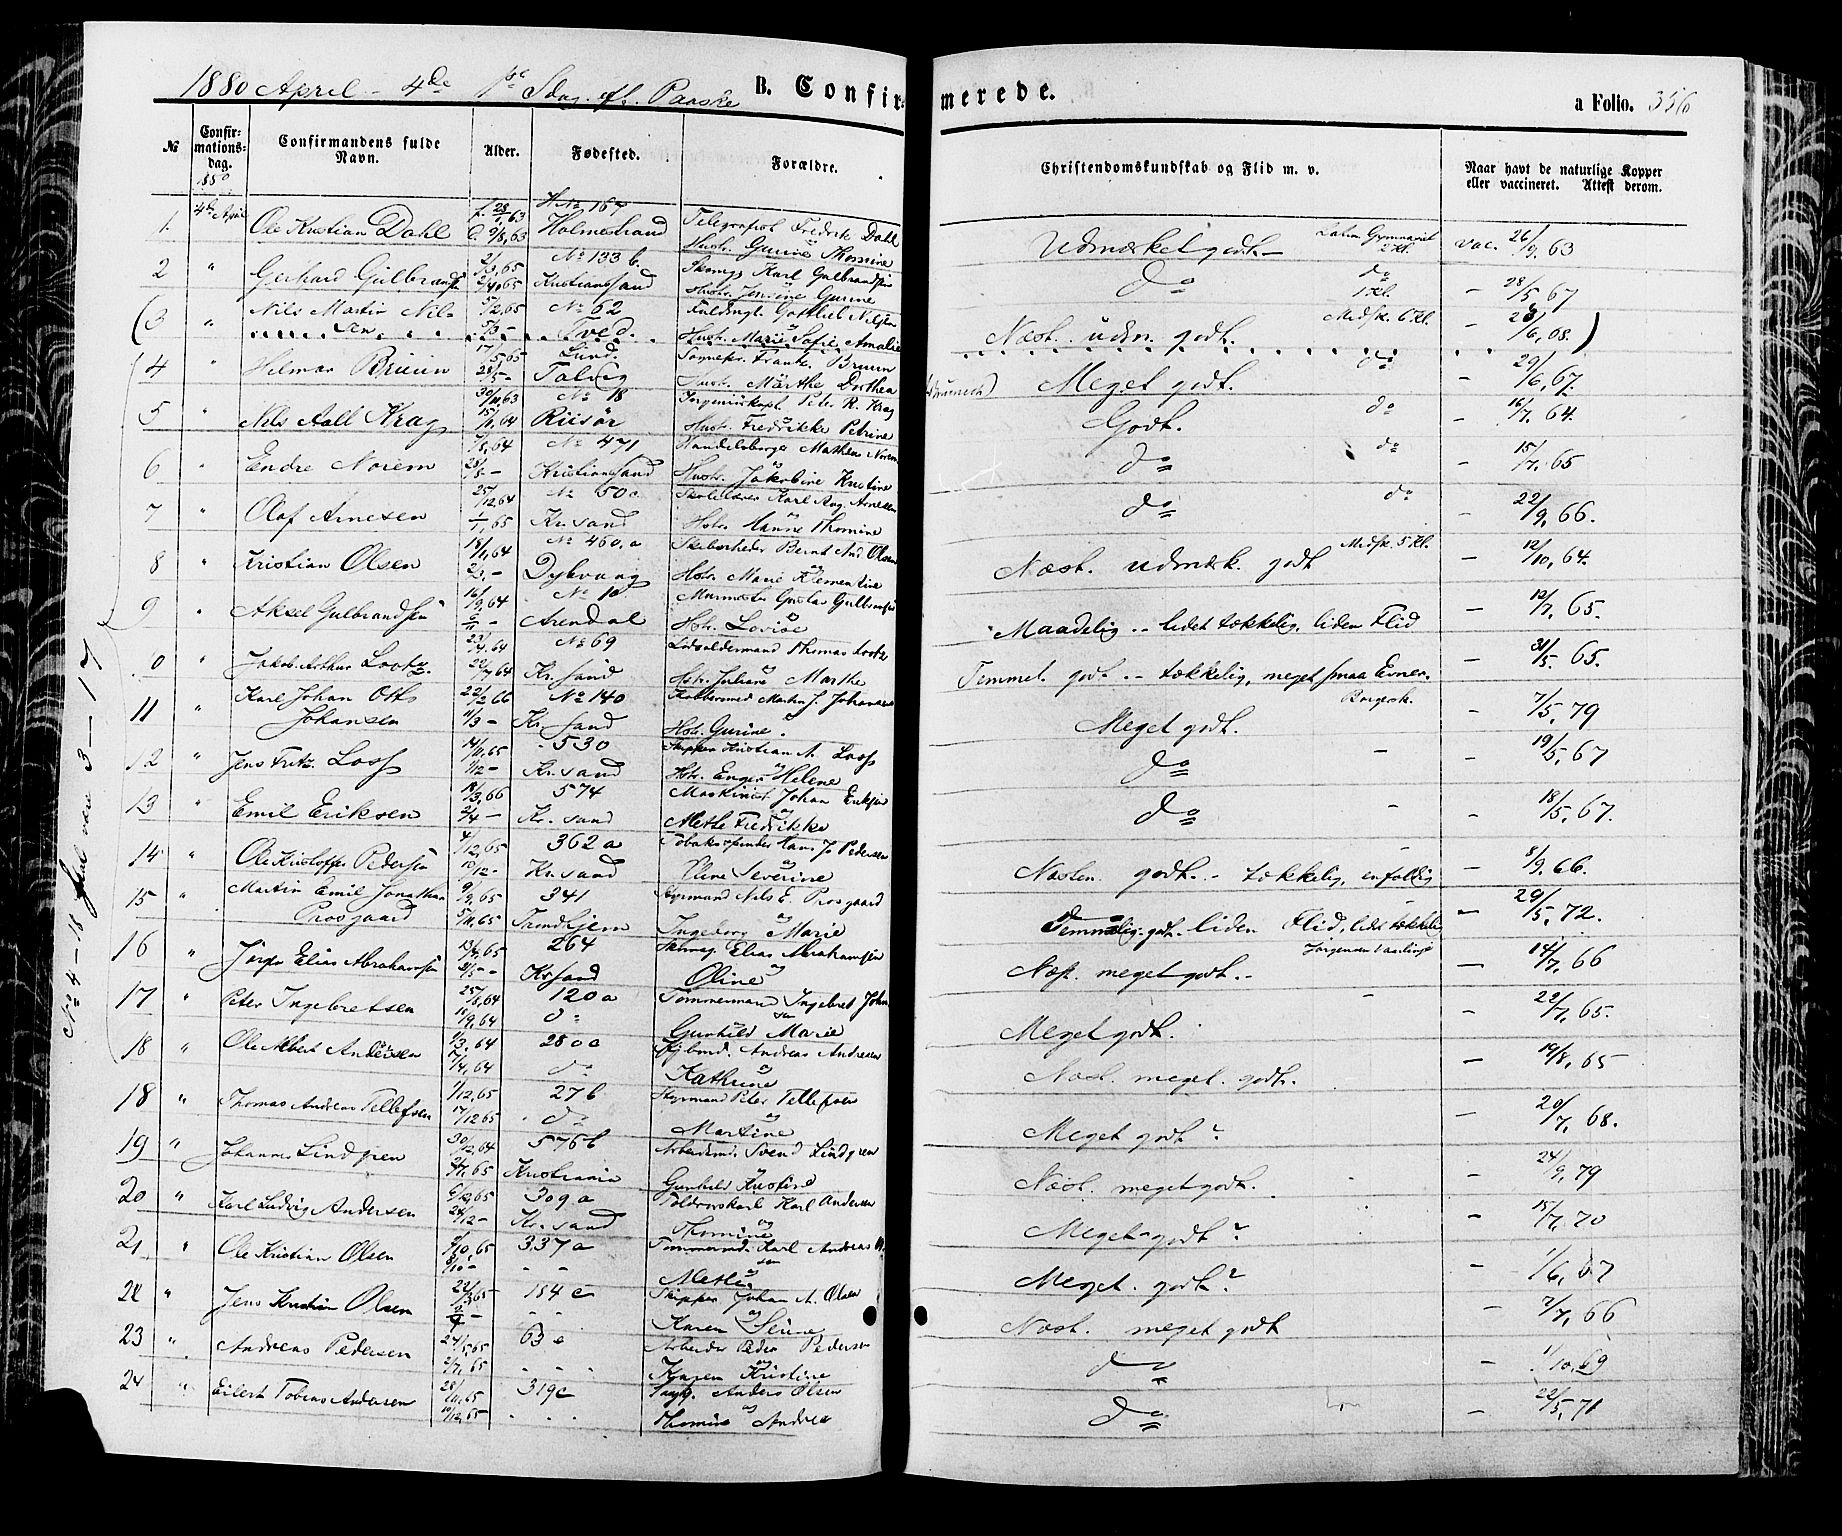 1880 April - 4de 1ste Sdag eft. Paaske
B. Confirmerede.
a Folio. 356
№
Confirmationsdag. 1880
Confirmandens fulde Navn.
Alder.
Fødested.
Forældre.
Christendomskundskab og Flid m. v.
Naar havt de naturlige Kopper eller vaccineret. Attest derom.
H No 167
1. 4de April Ole Kristian Dahl f. 28/1, 63 Holmestrand Telegrafist Fredrik Dahl
Hustr. Gurine Thomine
Udmærket godt - Latin Gymnasiet 2 Kl. vac. 26/9 63
No 133 b.
2 " Gerhard Gulbrandsen 2/3, 65 Kristianssand Karl Gulbrandsen
2/4, 65 Hustr. Jensine Gurine
do do 1 Kl. - 28/5 67
(3 " Nils Martin Nilsen 5/2, 65 No 62 Gottlieb Nilsen
Tved. Hustr. Marie Sofie Amalie
Næst. udm. godt. Midsk. 6 Kl. - /6, 68)
4 " Hilmar Bruun 17/5 65 Lund. Sognepr. Frantz Bruun
Talvig Hustr. Märthe Dorthea
Meget godt. do - 29/6, 67.
5 " Nils Aall Krag 30/11, 63 No 18 Peter R. Krag
15/1, 64 Riisør Hustr. Fredrikke Petrine
Godt. do - 16/7. 64.
6 " Endre Norem 7/8, 64 No 471 Handelsborger Mathias Norem
Kristianssand Hustr. Jakobine Kristine
do do - 15/7. 65
7 " Olaf Arnesen 25/12, 64 No 50 c Skolelærer Karl Aug. Arnesen
1/1, 65 Kr. sand Hstr. Hanne Thomine
do do - 22/9, 66.
8 " Kristian Olsen 18/11, 64 No 460, a Skibsreder Bernt And. Olsen
2/3, - Dybvaag Hstr. Marie Klementine
Næst. udmærk. godt Midsk. 5 Kl. - 12/10, 64.
9 " Aksel Gulbrandsen 16/9, 64 No 10 Murmester Gustav Gulbrandsen
Arendal Hstr. Lovise
Maadelig - lidet tækkelig, liden Flid - 12/7, 65.
0 " Jakob Arthur Lootz. 23/4, 64 No 69 Lodsoldermand Thomas Lootz
22/7 64 Kr. sand Hstr. Juliane Marthe
Temmel. godt - tækkelig, meget smaa Evner. - 31/5. 65.
11 " Karl Johan Otto Johansen 22/2 66 No 140 Martin J. Johansen
11/3 - Kr. sand Hstr. Gurine.
Meget godt. Borgersk. - 7/5, 79
12 " Jens Fritz. Loss 14/11, 65 530 Skipper Kristian A. Loss
1/12 - Kr. sand Hstr. Enger Helene
do - - 19/5, 67
13 " Emil Eriksen 18/3, 66 574 Maskinist Johan Eriksen
2/4 - Kr. sand Mette Fredrikke
do - - 18/5, 67.
14 " Ole Kristoffer Pedersen 4/12, 65 362 a Tobakspinder Hans J. Pedersen
19/12 - Kr. sand Oline Severine
Næsten godt - tækkelig, enfoldig - 8/9. 66.
15 " Martin Emil Jonathan Prosgaard 9/9, 65 341 Styrmand Nils E. Prosgaard
5/11, 65 Trondhjem Ingeborg Marie
Temmelig godt - liden Flid, lidt tækkelig - 29/5, 72.
16 " Jørgen Elias Abrahamsen 13/4, 65 264 Elias Abrahamsen
Kr. sand Oline
Næst. meget godt. - - 14/7, 66
17 " Peter Ingebretsen 25/8, 64 120 a Tømmermand Ingebret Johnsen
18/9, 64 do Gunhild Marie
Meget godt. - - 22/7, 65.
18 " Ole Albert Andersen 1/3, 64 280 c Andreas Andersen
17/4, 64 do Kathrine
Næst. meget. godt. - 19/8, 65
18 " Thomas Andreas Tellefsen 1/12, 65 276 Styrmand Peter Tellefsen
17/12 65 do Martine
Meget godt? - 20/7, 68.
19 " Johannes Lindgren 30/12, 64 576 b Arbeidsmd. Svend Lindgren
2/7, 65 Kristiania Gunhild Kristine
Næst. meget godt. - 24/9, 79
20 " Karl Ludvig Andersen 6/12, 65 309 a Toldroerskarl Karl Andersen
24/12 - Kr. sand Thomine
Meget godt? - 15/7, 70
21 " Ole Kristian Olsen /10, 65 337 a Tømmermd. Karl Andreas Olsen
- - Mette
Meget. godt? - 1/6, 67
22 " Jens Kristian Olsen 22/3 65 154 c Skipper Johan A. Olsen
- - Karen Serine
Næst. meget godt - 7/7, 66
23 " Andreas Pedersen 24/5, 65 63 c Arbeider Peder Pedersen
2/7, 65 - - - Karen Kristine
do - 1/10, 69
24 " Eilert Tobias Andersen 28/11, 65 319 c Anders Olsen
10/12, 65 - - - Thomine Andrea
do - 22/5, 71
No 4 - 18 skal være 3 - 17